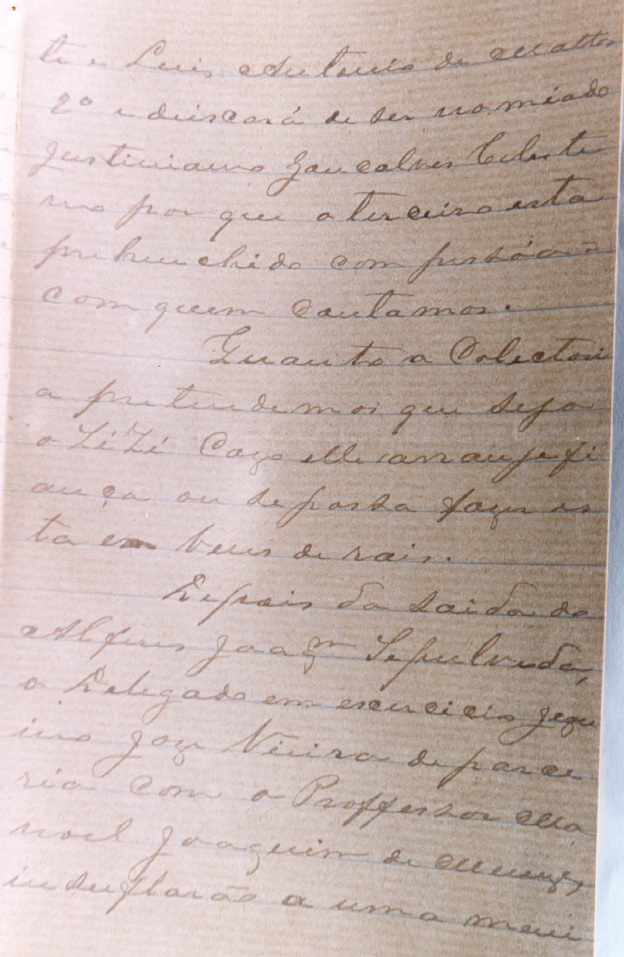 te e Luis Antonio de Mattos
2º e deiscará de ser nomiado
Justiniano Gonçalves Celesti
no por que o terceiro esta
prehenchido com pessôas
com quem contamos.
Quanto a Colectori
a pretendemos que seja
o Zizi Caso elle arranje fi
ança ou se possa fazer es
ta em bens de rais.
Depois da saida do
Alferes Joaqm Sepulveda,
o Delegado em exercicio
José Vieira de parce
ria com o Proffessor Ma
noel Joaquim de Menezes
insuflarão a uma meni